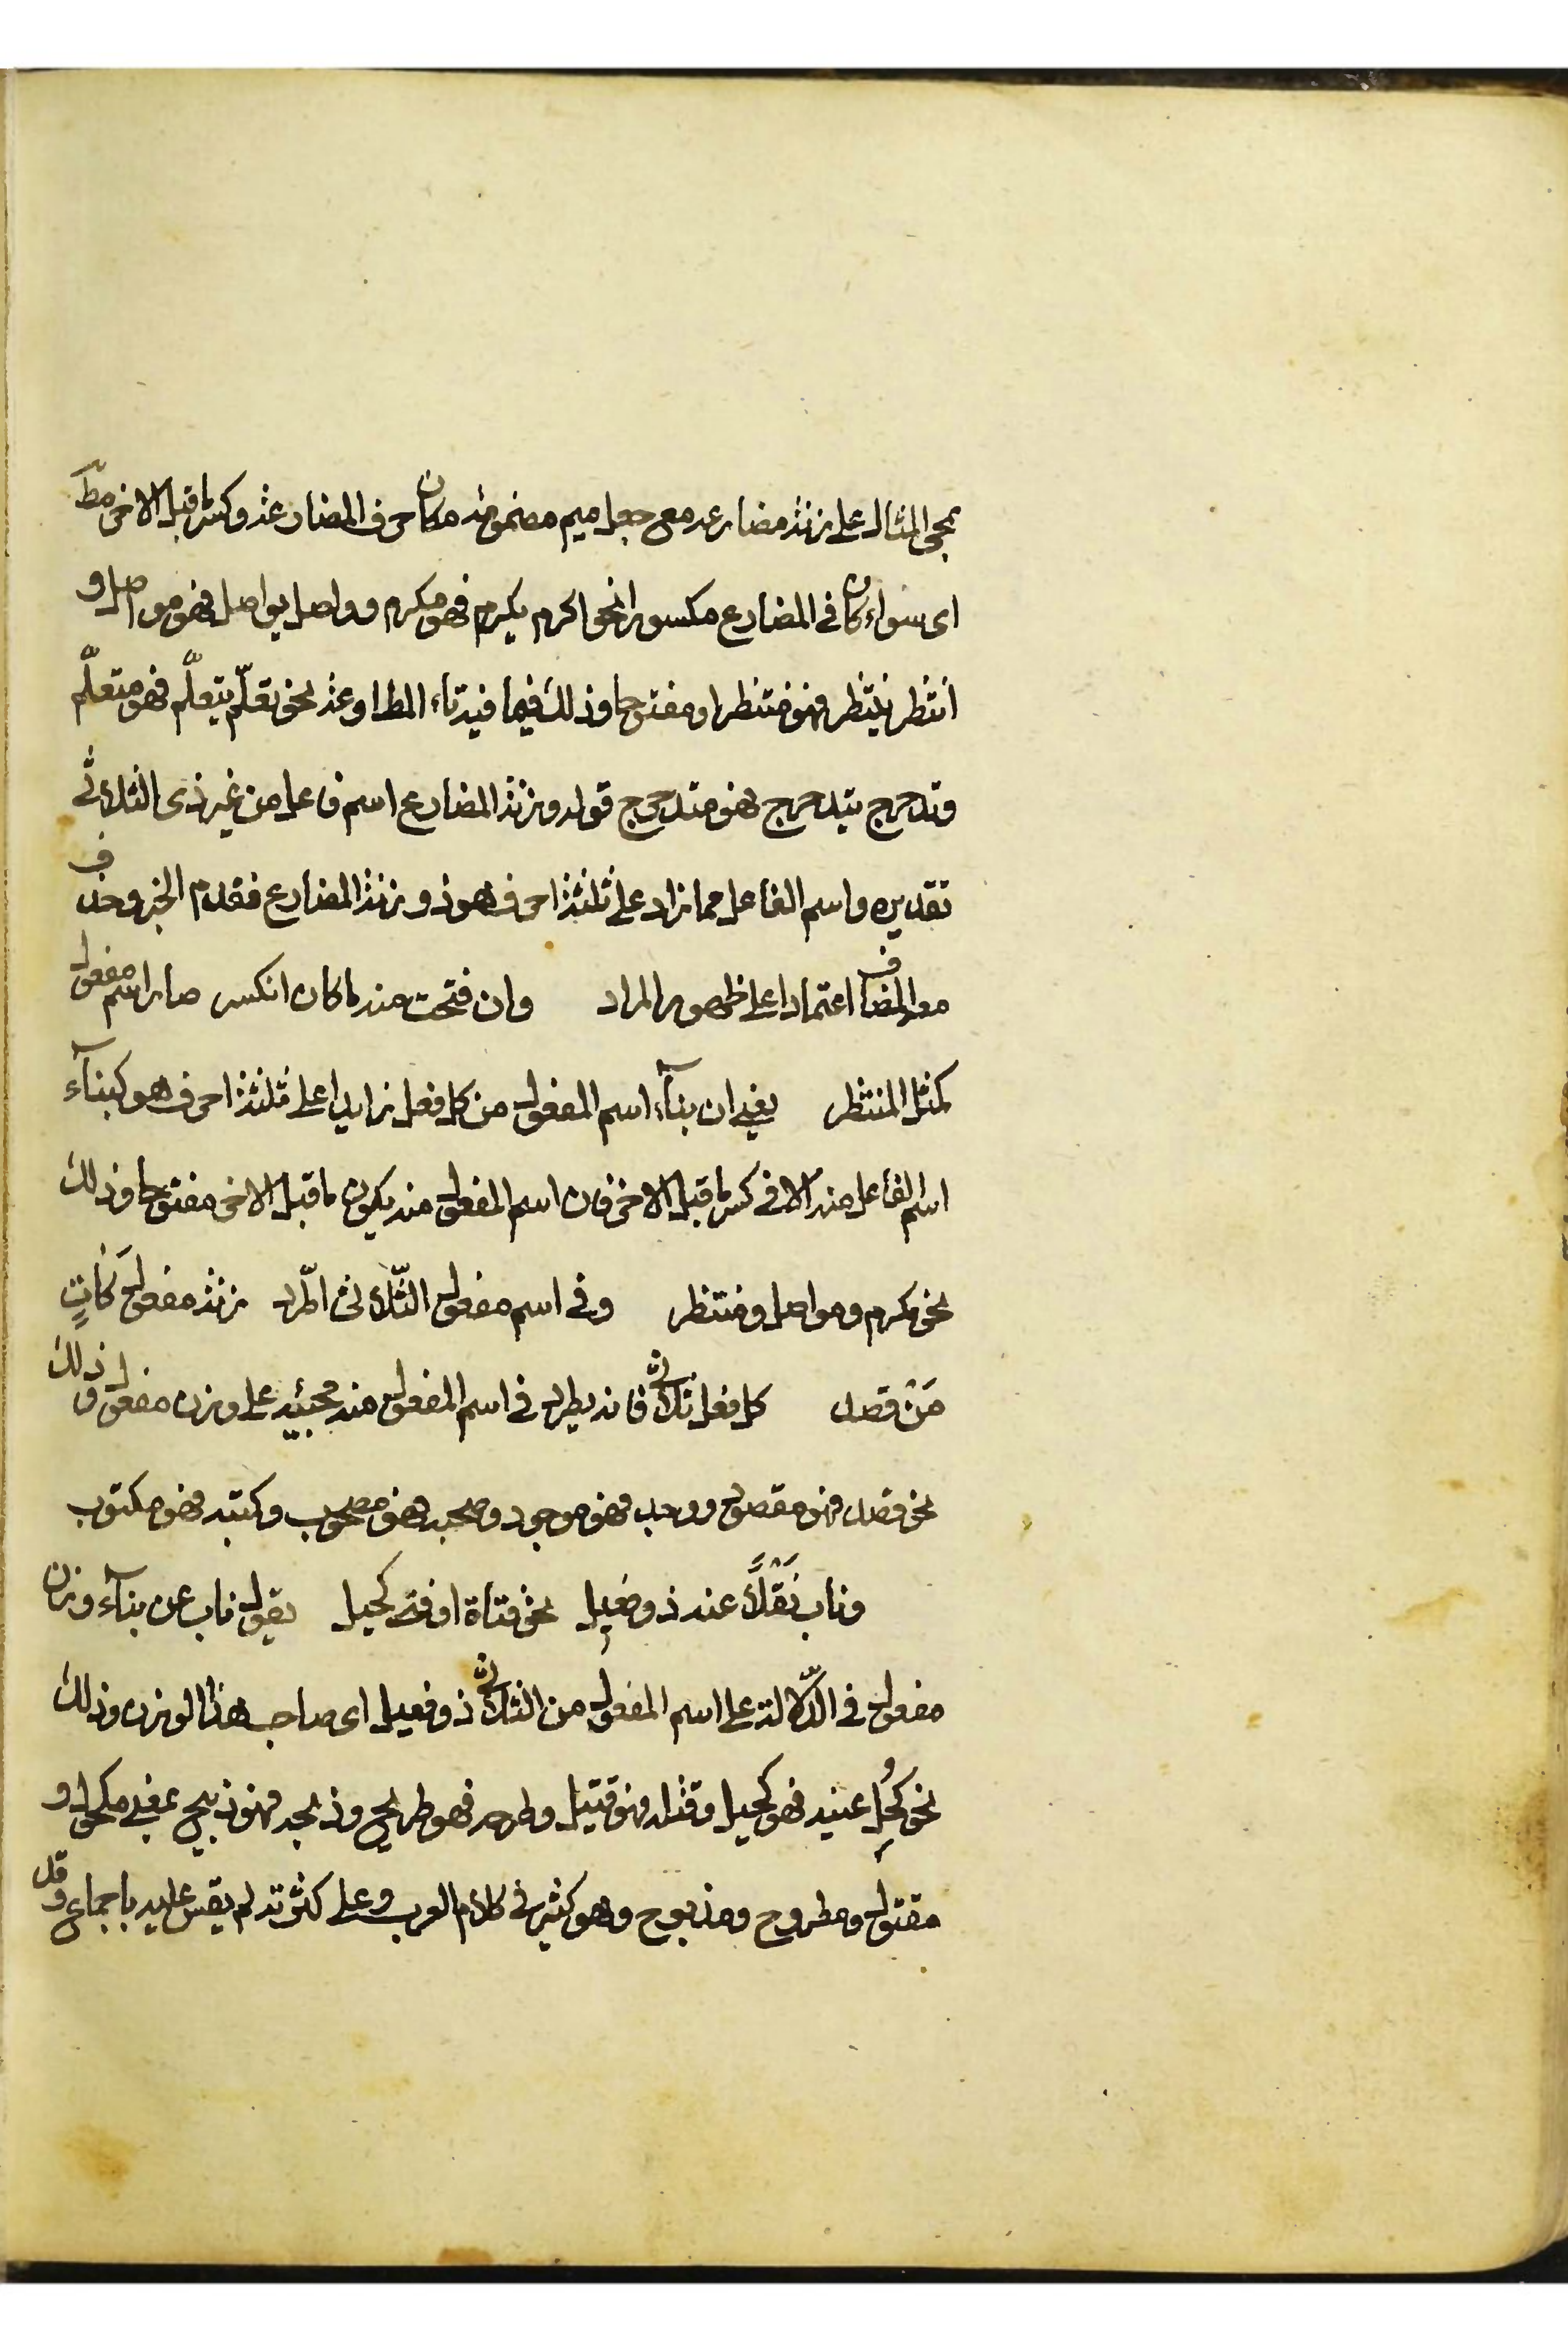 بمجئ المثال على زنة مضارعه مع جعل ميم مضمومة مكان حرف المضارعة وكسر ما قبل الاخر مطـ
اى سواء كان فى المضارع مكسورا نحو اكرم يكرم فهو مكرم وواصل يواصل فهو مواصل و
انتظر ينتظر فهو منتظر او مفتوحا وذلك فيما فيه تاء المطاوعة نحو تعلّم يتعلّم فهو متعلّم
وتدحرج يتدحرج فهو متدحرج قوله وزنة المضارع اسم فاعل من غير ذى الثلاثى
تقديره واسم الفاعل مما زاد على ثلثة احرف هو ذو زنة المضارع فقدم الخبر وحذف
معه المضاف اعتمادا على ظهور المراد وان فتحت منه ما كان انكسر صار اسم مفعول
كمثل المنتظر يعنى ان بنآء اسم المفعول من كل فعل زايد اعلى ثلثة احرف هو كبنآء
اسم الفاعل منه الا فى كسر ما قبل الاخر فان اسم المفعول منه يكون ما قبل الاخر مفتوحا وذلك
نحو مكرم ومواصل ومنتظر وفى اسم مفعول الثّلاثى اطّرد زنة مفعول كَاٰتٍ
مَنْ قصد كل فعل ثلاثى فانه يطرد فى اسم المفعول منه مجيئه على وزن مفعول وذلك
نحو قصد فهو مقصود ووجد فهو موجود وصحبه فهو مصحوب وكتبه فهو مكتوب
وناب نَقْلًا عنه ذو فعيل نحو فتاة او فتى كحيل يقول ناب عن بنآء وزن
مفعول فى الدّلالة على اسم المفعول من الثلاثى ذو فعيل اى صاحب هذا الوزن وذلك
نحو كُحِل عينه فهو كحيل وقتله فهو قتيل وطرحه فهو طريح وذبحه فهو ذبيح بمعنى مكحول و
مقتول ومطروح ومذبوح وهو كثير فى كلام العرب وعلى كثرته لم يقس عليه باجماع وقد